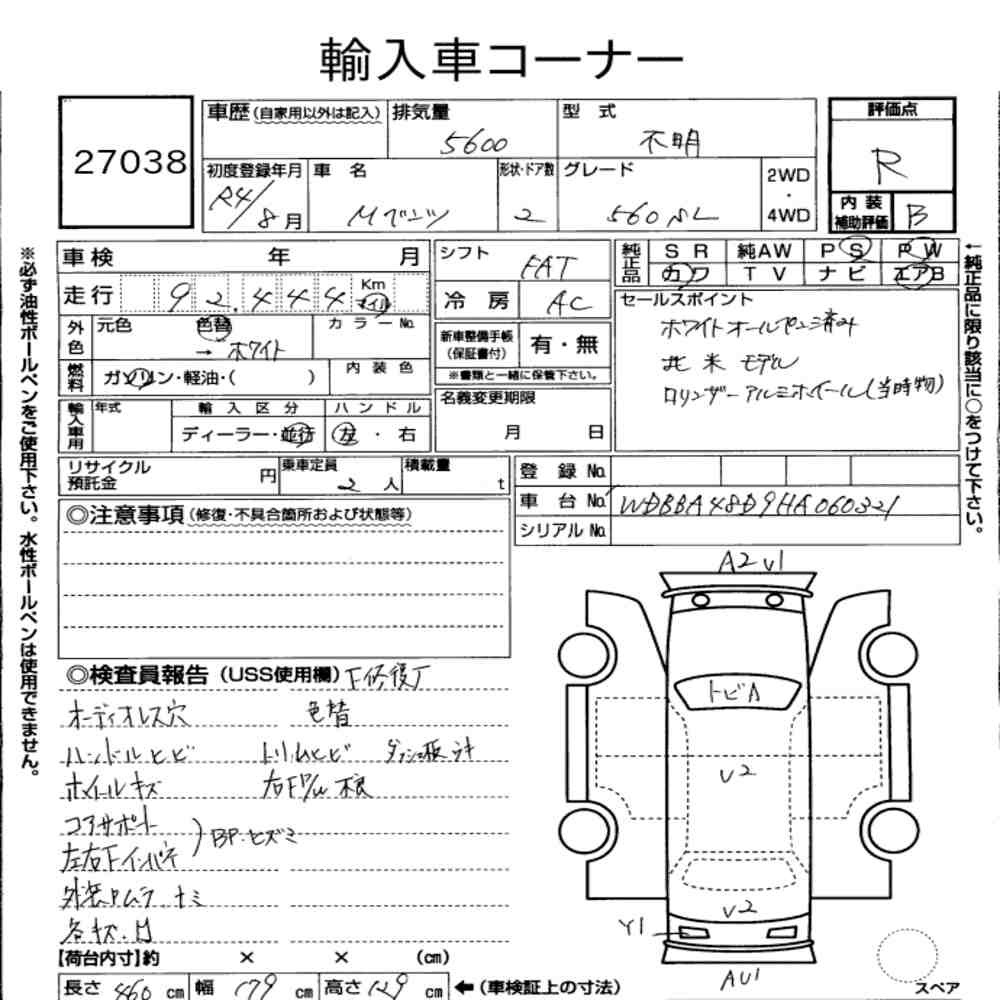 輸入車コーナー
27038
車歴(自家用以外は記入)
排気量
5600
型 式
不明
評価点
R
初度登録年月
R4/8月
車 名
Mベンツ
形状・ドア数
2
グレード
560SL
2WD
・
4WD
内 装
補助評価
B
車検 年 月
走行 92,444 Km マイル
シフト
FAT
冷 房
AC
純正品
SR 純AW PS PW
カワ TV ナビ エアB
外色
元色
色替
→ ホワイト
カラーNo.
燃料
ガソリン・軽油・( )
内 装 色
新車整備手帳
(保証書付)
有・無
※書類と一緒に保管下さい。
セールスポイント
ホワイトオールペン済み
北米モデル
ロリンザーアルミホイール(当時物)
輸入車用
年式
輸 入 区 分
ディーラー・並行
ハ ン ド ル
左 ・ 右
名義変更期限
月 日
リサイクル
預託金
円
乗車定員
2人
積載量
t
登 録 No.
車 台 No. WDBBA48D9HA060321
シリアル No.
◎注意事項(修復・不具合箇所および状態等)
◎検査員報告(USS使用欄)
オーディオレス穴 色替
ハンドルヒビ トリムヒビ
ホイールキズ
コアサポート
左右Fインパネ
BP・ヒズミ
【荷台内寸】約 × × (cm)
長さ 460 cm 幅 179 cm 高さ 129 cm ←(車検証上の寸法)
A2 V1
トビA
V2
V2
Y1
AU1
スペア
※必ず油性ボールペンをご使用下さい。水性ボールペンは使用できません。
←純正品に限り該当に○をつけて下さい。